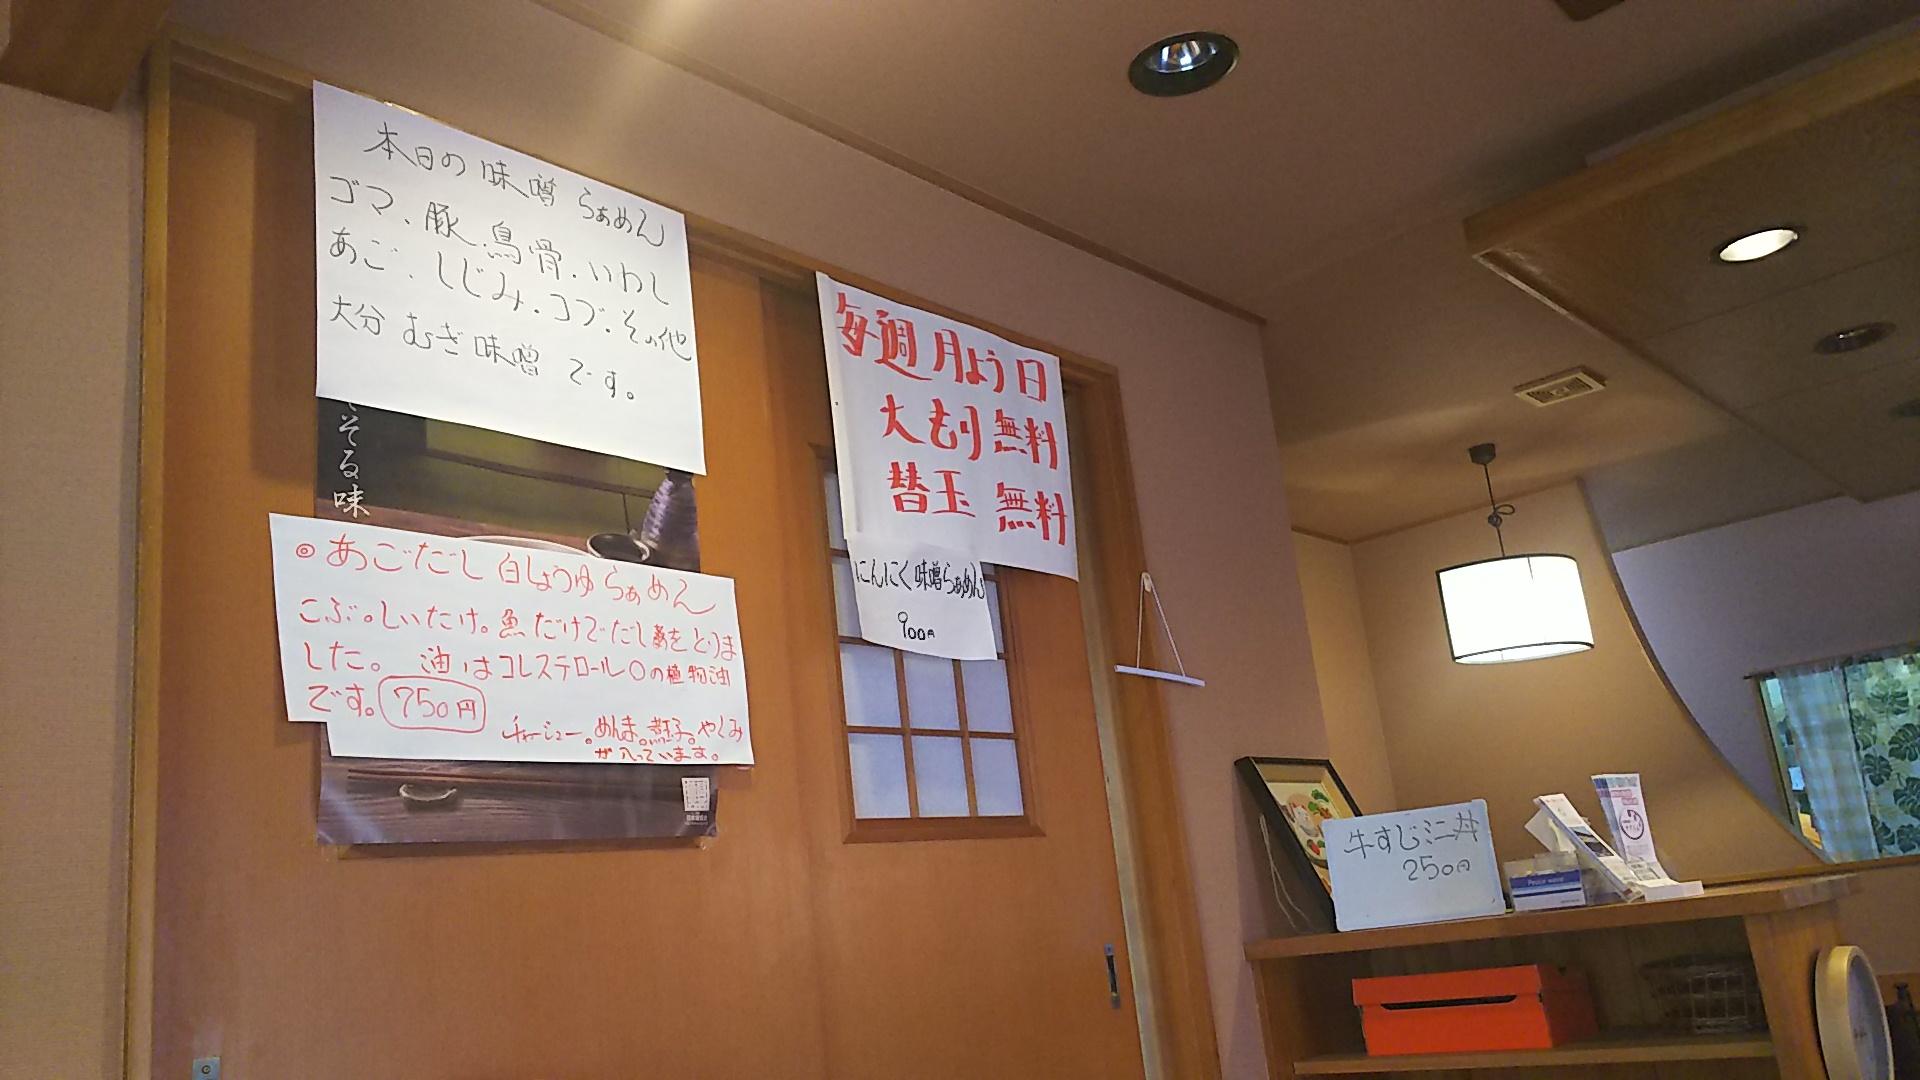 本日の味噌らぁめん
ゴマ、豚、鳥骨.いわし
あご、しじみ.コブ.その他
大分むぎ味噌です。
そる味
◎あごだし白しょうゆらぁめん
こぶ。しいたけ。魚だけでだしをとりま
した。油はコレステロール〇の植物油
です。750円
チャーシュー。めんま。煮玉子。やくみ
が入っています。
毎週月よう日
大もり無料
替玉無料
にんにく味噌らぁめん
900円
牛すじミニ丼
250円